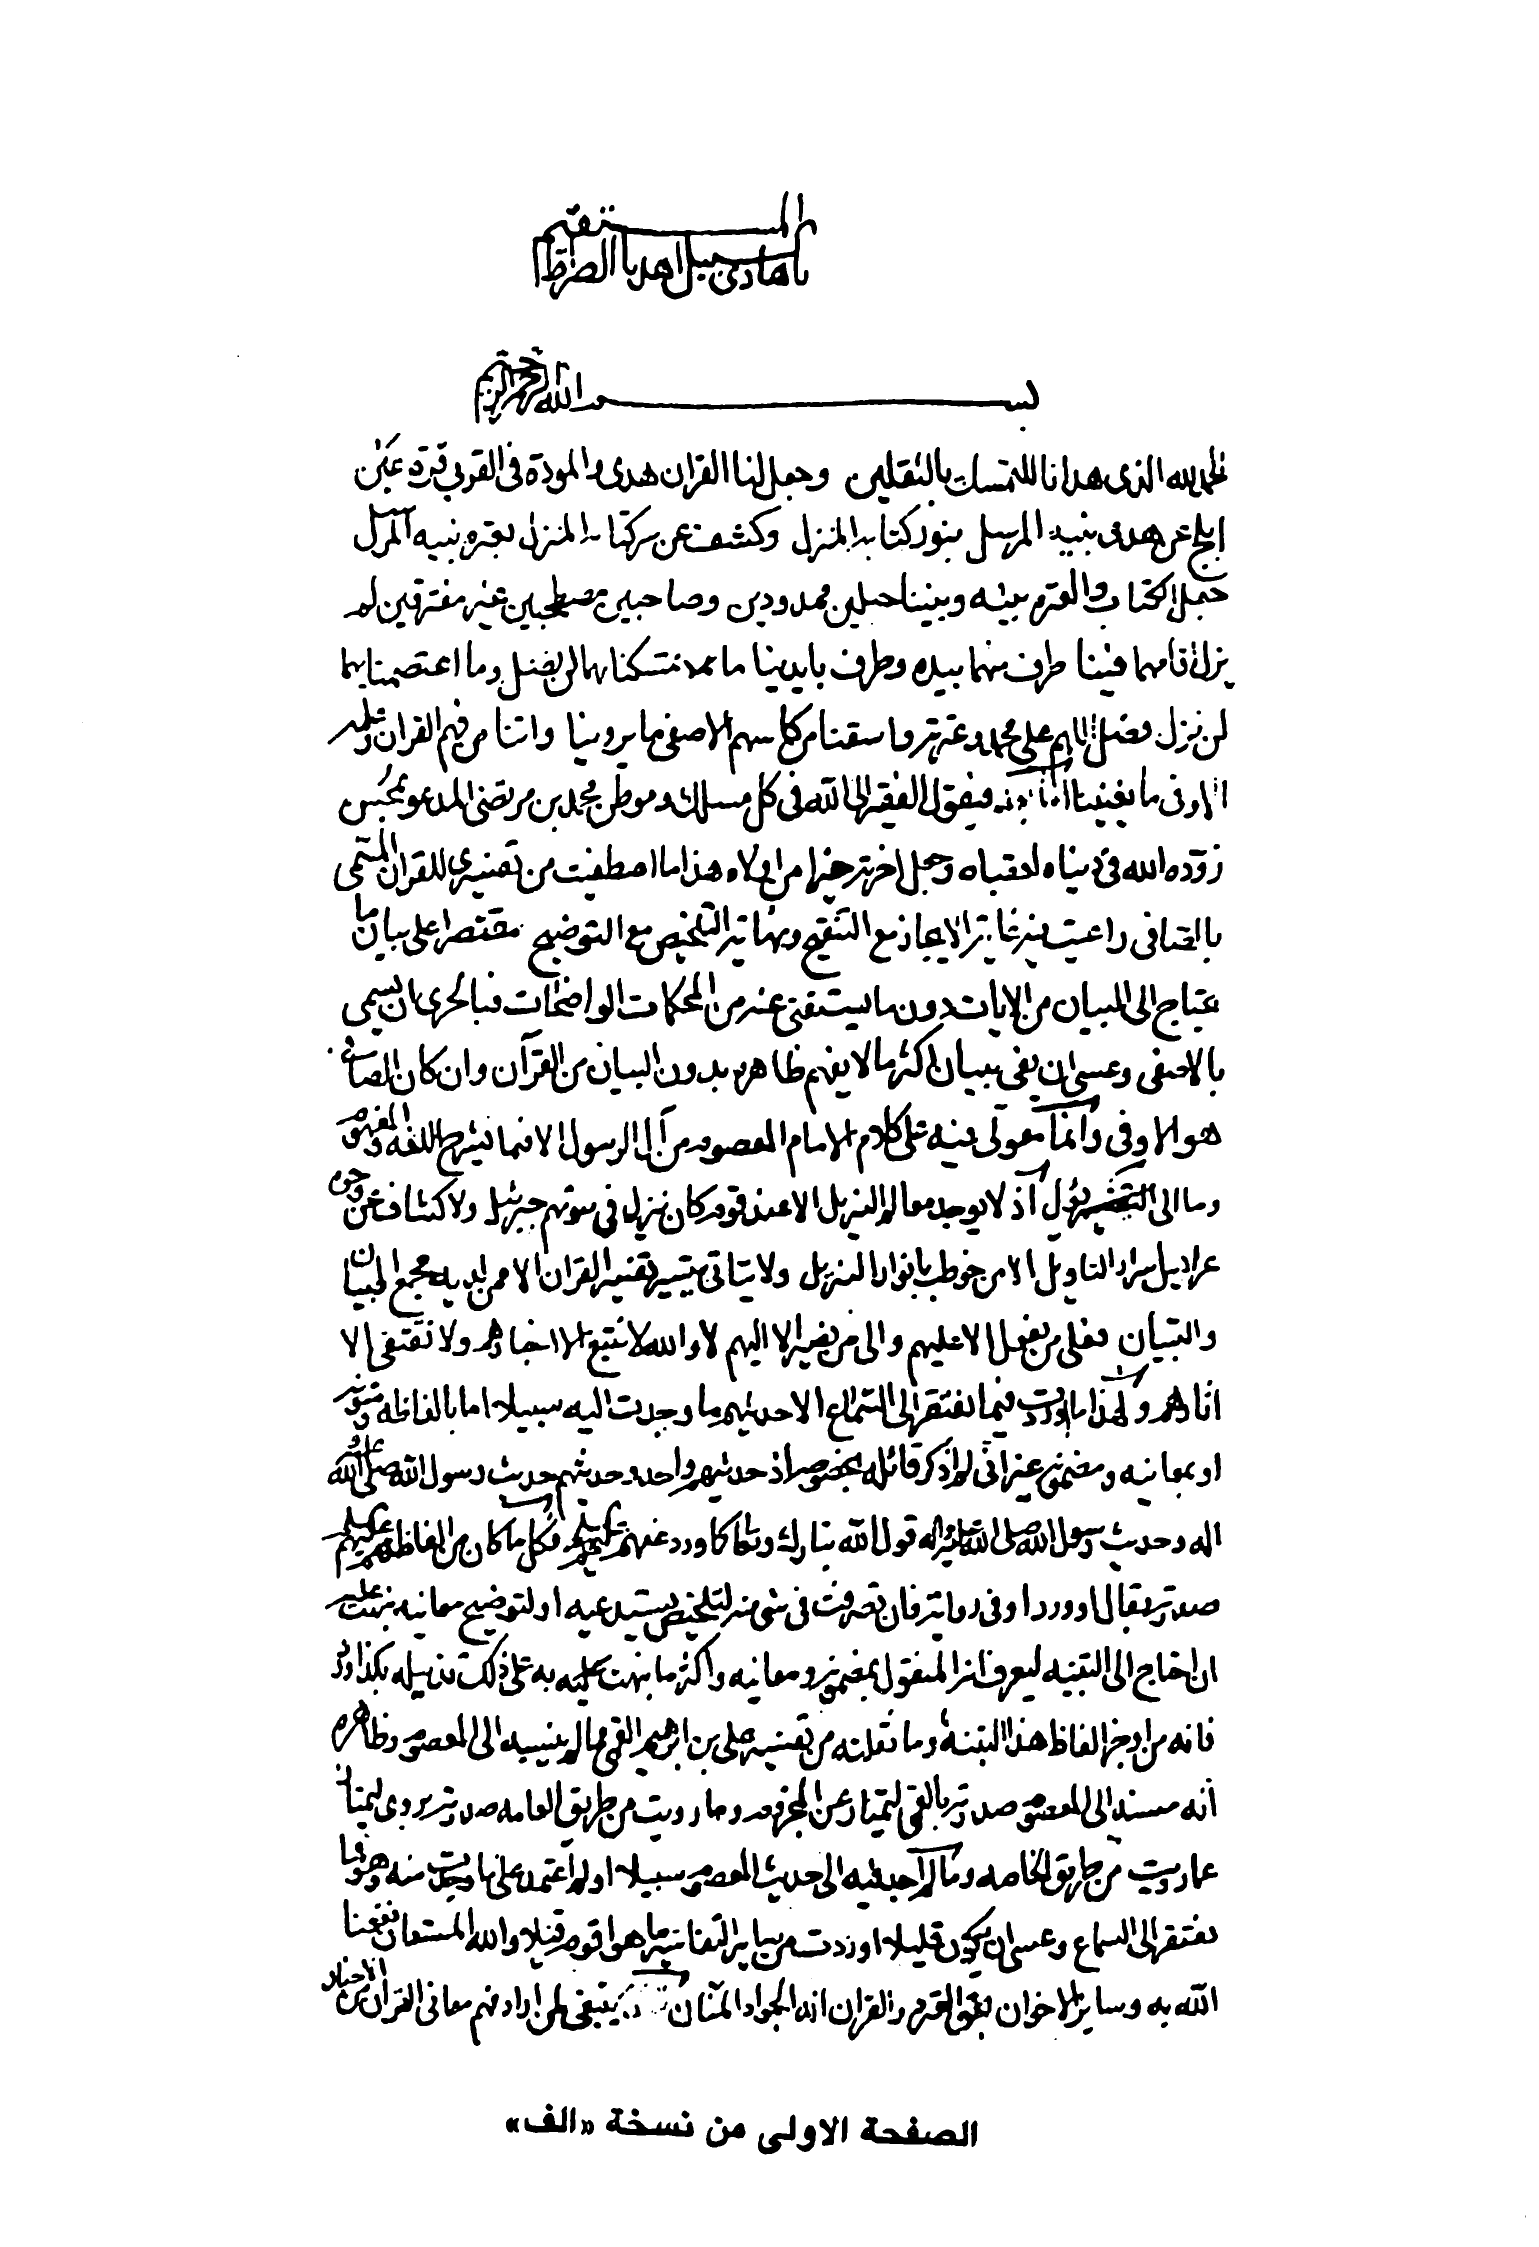 يا هادي السبيل اهدنا الصراط المستقيم
بسم الله الرحمن الرحيم
الحمد لله الذى هدانا للتمسك بالثقلين وجعل لنا القران هدى والمودة فى القربى قرة عين
ابلج عن هدى نبيه المرسل بنور كتابه المنزل وكشف عن سر كتابه المنزل بعترة نبيه المرسل
جعل الكتاب والعترة بينه وبيننا حبلين ممدودين وصاحبين مصطحبين غير مفترقين لم
يزل اقامهما فينا طرف منهما بيده وطرف بايدينا ما تمسكنا بهما لن نضل وما اعتصمنا بهما
لن نزل فصل اللهم على محمد وعترته واسقنا من كاسهم الاصفى ما يروينا واتنا من فهم القران وعلمه
الاوفى ما يغنينا فيقول الفقير الى الله فى كل مسلك وموطن محمد بن مرتضى المدعو بمحسن
زوده الله فى دنياه لعقباه وجعل اخرته خيرا من اولاه هذا ما اصطفيت من تفسيرى للقران المسمى
بالصافى راعيت فيه غاية الايجاز مع التنقيح ونهاية التلخيص مع التوضيح مقتصرا على بيان ما
يحتاج الى البيان من الايات دون ما يستغنى عنه من المحكمات الواضحات فبالحرى ان يسمى
بالاصفى وعسى ان يفى ببيان اكثر ما لا يفهم ظاهره بدون البيان من القرآن وان كان الصافى
هو الاوفى وانما معولى فيه على كلام الامام المعصوم من آل الرسول الا فيما يشرح اللغة والمفهوم
وما الى القشر يؤل اذ لا يوجد معالم التنزيل الا عند قوم كان ينزل فى بيوتهم جبرئيل ولا كشاف عن وجوه
عرايس اسرار التاويل الا من خوطب بانوار التنزيل ولا يتاتى تيسير تفسير القران الا ممن لديه مجمع البيان
والتبيان فعلى من يعول الا عليهم والى من يصير الا اليهم لا والله لا نتبع الا اخبارهم ولا نقتفى الا
اثارهم ولهذا ما اوردت فيما يفتقر الى السماع الا حديثهم ما وجدت اليه سبيلا اما بالفاظه ومتونه
او بمعانيه ومضمونه غير انى لم اذكر قائله بخصوصه اذ حديثهم واحد وحديثهم حديث رسول الله صلى الله عليه و
اله وحديث رسول الله صلى الله عليه واله قول الله تبارك وتعالى كما ورد عنهم عليهم فكل ما كان من الفاظهم عليهم
صدرته بقال او ورد او فى رواية فان تصرفت فى شئ منه لتلخيص يستدعيه او لتوضيح معانيه نبهت عليه
ان احتاج الى التنبيه ليعرف انه المنقول بمضمونه ومعانيه واكثر ما نبهت عليه به على ذلك تذييله بكذا ورد
فانه من اوجز الفاظ هذا التنبيه وما نقلته من تفسير على بن ابراهيم القمى مما لم ينسبه الى المعصوم وظاهره
أنه مسند الى المعصوم صدرته بالقمى ليتميز عن المجزوم وما رويت من طريق العامه صدرته بروى ليمتاز
عما رويت من طريق الخاصه وما لم اجد فيه الى حديث المعصوم سبيلا او لم اعتمد على ما وجدت منه وهو مما
يفتقر الى السماع وعسى ان يكون قليلا اوردت من ساير التفاسير ما هو اقوم قيلا والله المستعان نفعنا
الله به وساير الاخوان بحق العترة والقران انه الجواد المنان ينبغى لمن اراد فهم معانى القران من الاخبار
الصفحة الاولى من نسخة «الف»